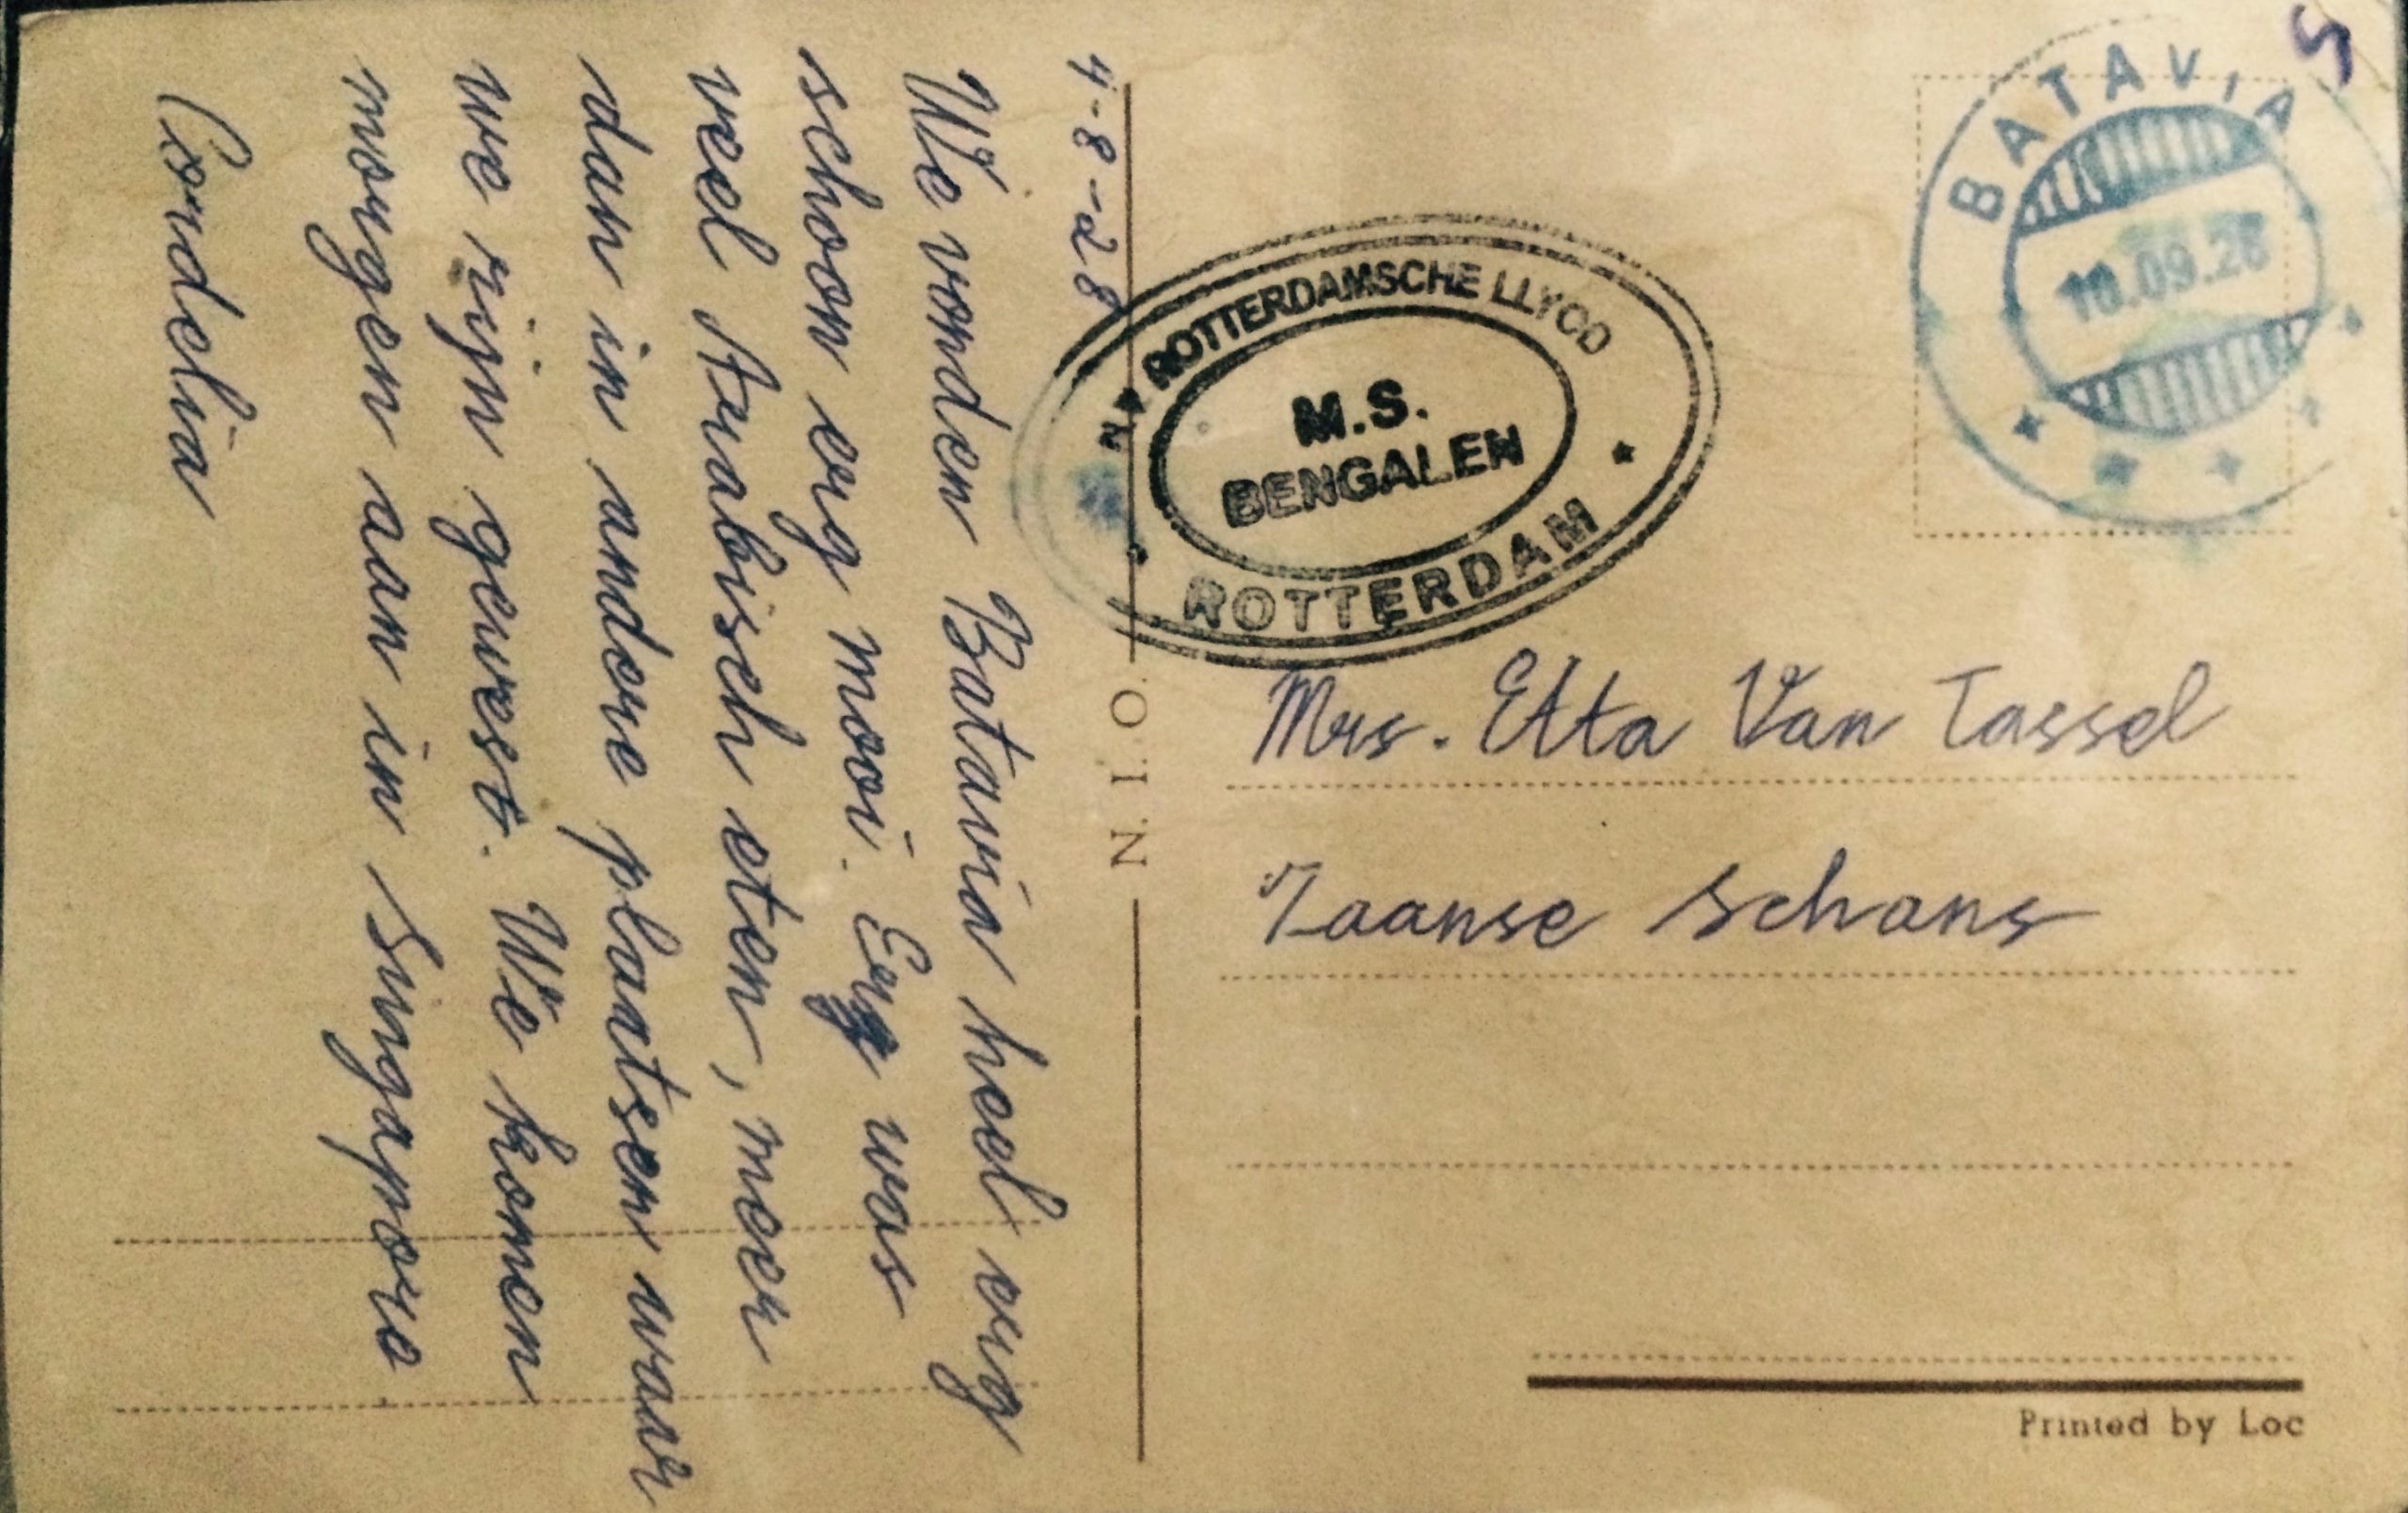 4-8-28
We vonden Batavia heel erg
schoon erg mooi. Er was
veel Arabisch eten, meer
dan in andere plaatsen waar
we zijn geweest. We komen
morgen aan in Singapore
Cordelia
N.I.O.
NV ROTTERDAMSCHE LLYOD
M.S.
BENGALEN
ROTTERDAM
BATAVIA
10.09.28
Mrs. Etta Van Tassel
Zaanse Schans
Printed by Loc